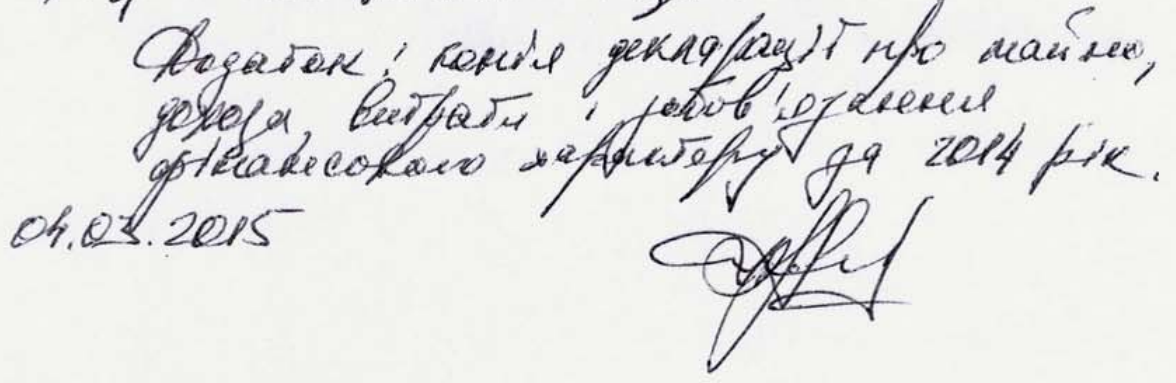 Додаток: копія декларації про майно,
доходи, витрати і зобов'язання
фінансового характеру за 2014 рік.
04.03.2015